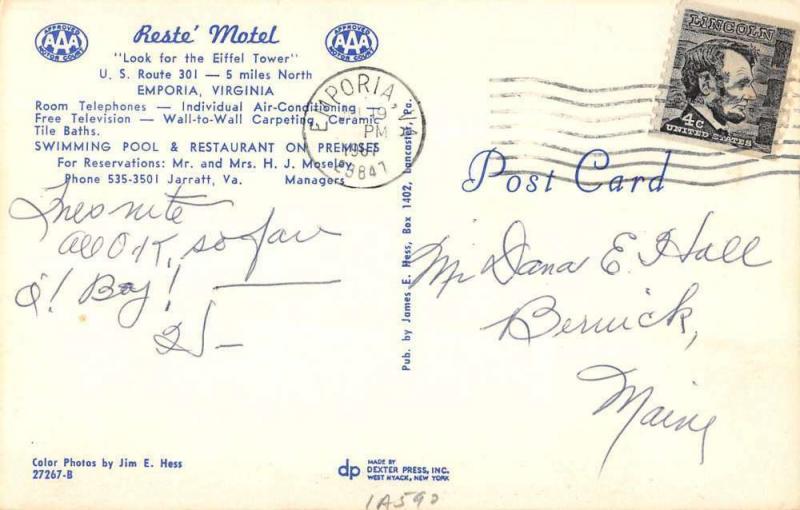 APPROVED AAA MOTOR COURT
Resté Motel
APPROVED AAA MOTOR COURT
"Look for the Eiffel Tower"
U. S. Route 301 — 5 miles North
EMPORIA, VIRGINIA
Room Telephones — Individual Air-Conditioning
Free Television — Wall-to-Wall Carpeting, Ceramic
Tile Baths.
SWIMMING POOL & RESTAURANT ON PREMISES
For Reservations: Mr. and Mrs. H. J. Moseley
Phone 535-3501 Jarratt, Va. Managers
EMPORIA,
19
PM
1967
23847
LINCOLN
4c
UNITED STATES
Post Card
nite
all OK, so far
O! Boy!
Pub. by James E. Hess, Box 1402, Lancaster, Pa.
Mr Dana E Hall
Berwick,
Maine
Color Photos by Jim E. Hess
27267-B
dp
MADE BY
DEXTER PRESS, INC.
WEST NYACK, NEW YORK
1A590